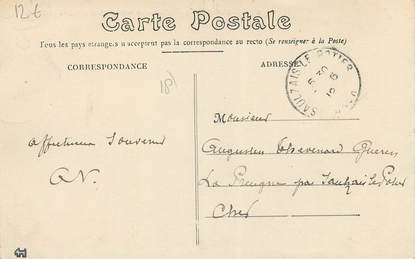 12€
Carte Postale
Tous les pays étrangers n'acceptent pas la correspondance au recto (Se renseigner à la Poste)
CORRESPONDANCE
ADRESSE
SAULZAIS-LE-POTIER
18
Monsieur
Affectueux Souvenir
Augustin Thevenard
A.V.
La par Saulzais le Potier
Cher